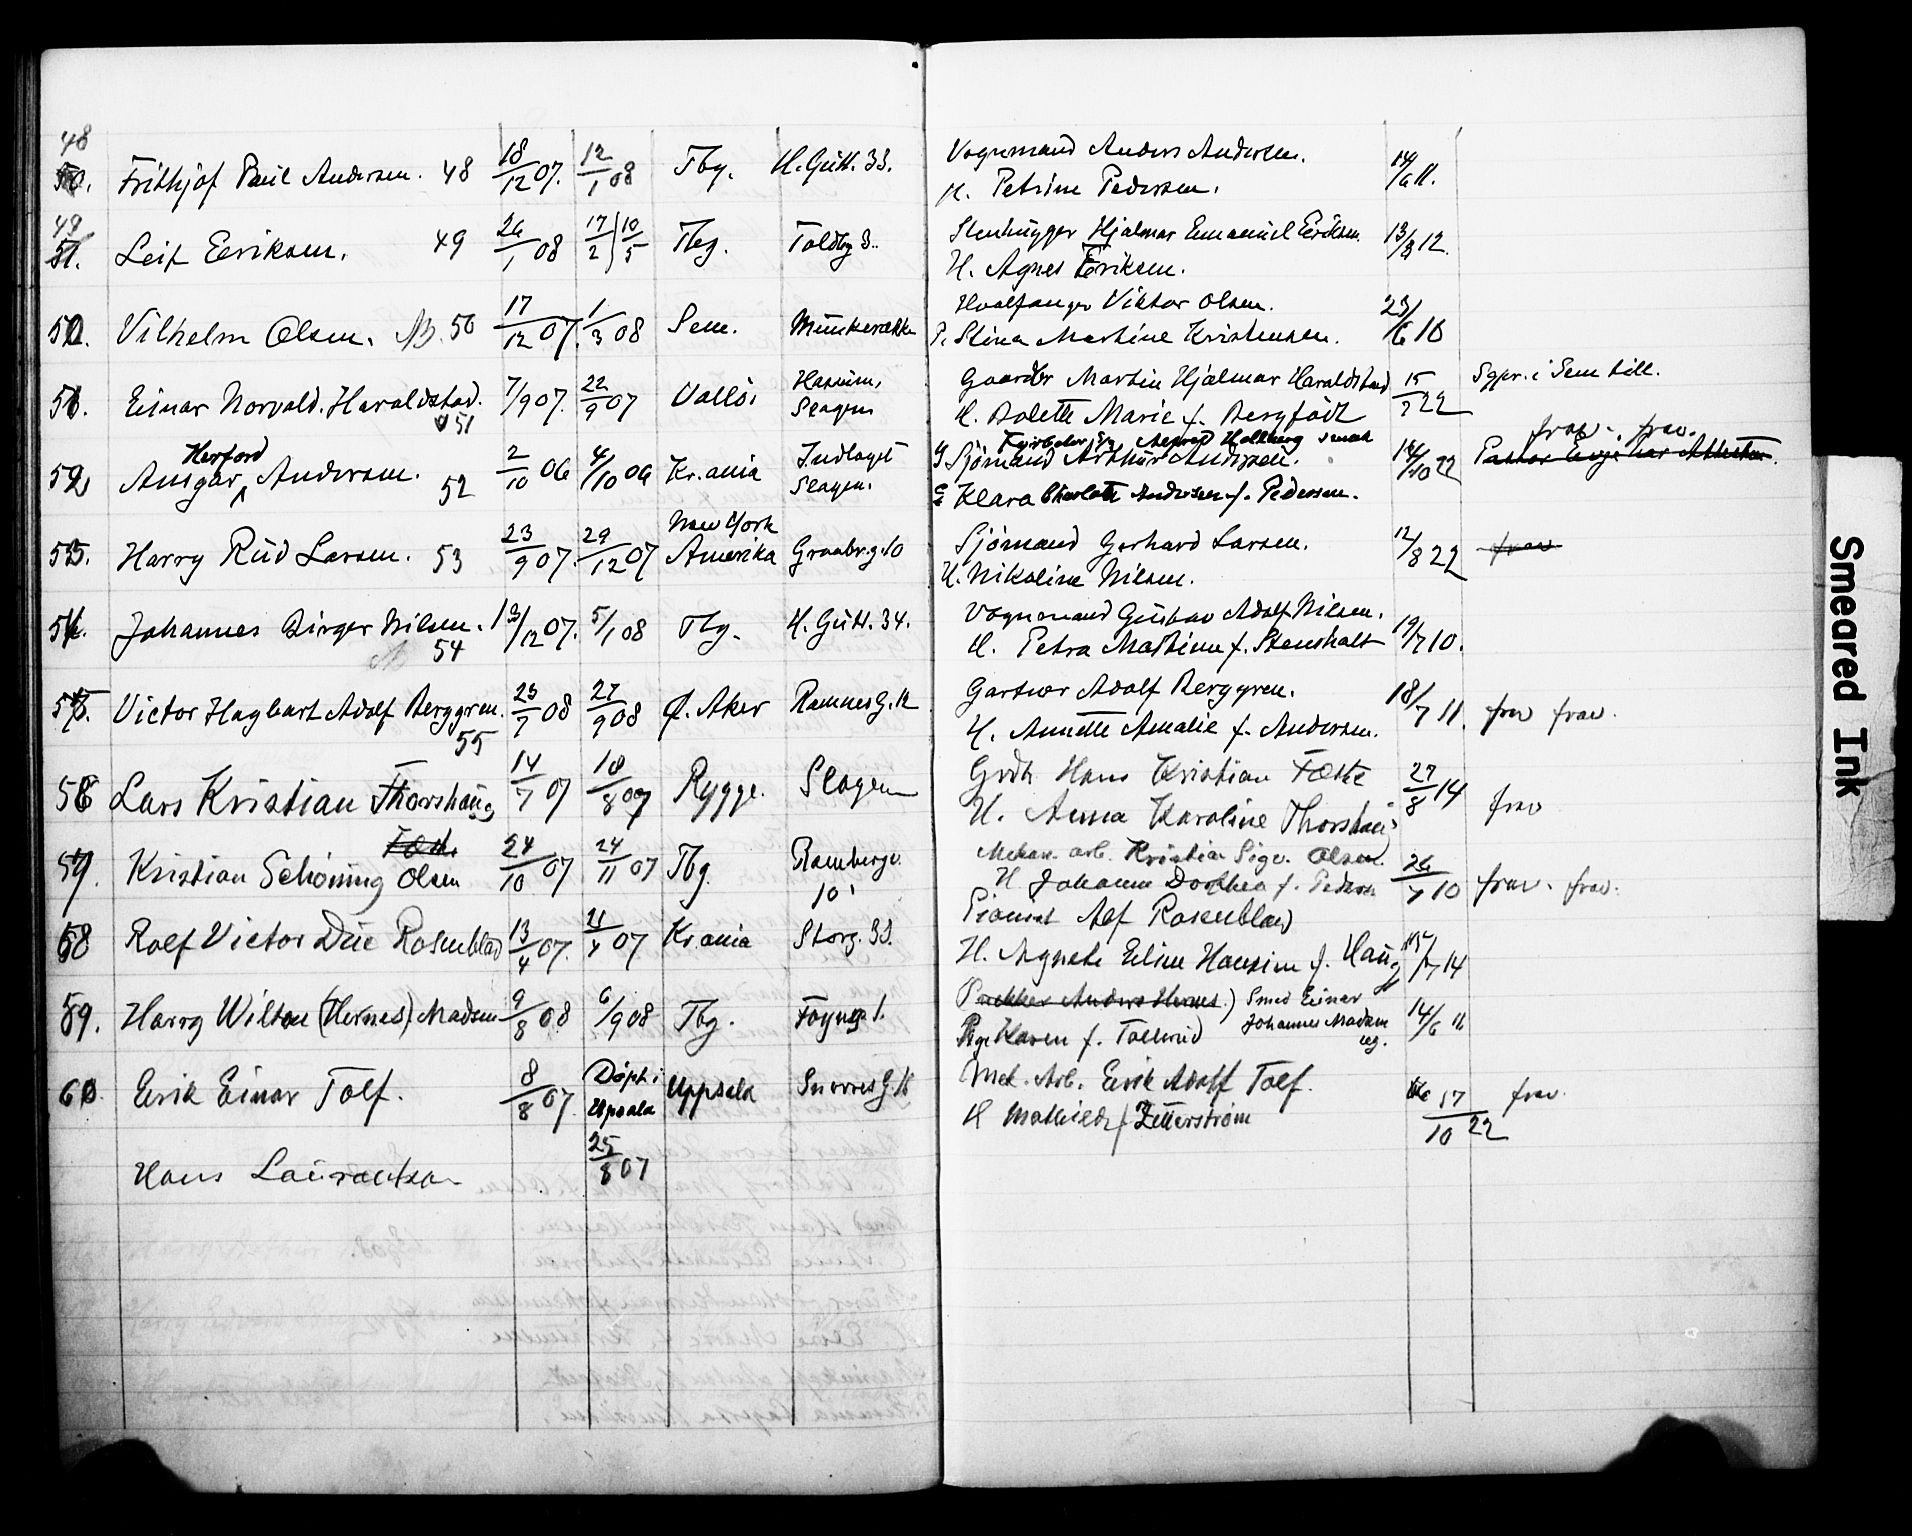 48
50. Frithjof Paul Andersen. 48 18/12 07. 12/1 08 Tbg. H. Gutt. 33. Vognmand Anders Andersen. 14/6 11.
H. Petrine Pedersen.
49
51. Leif Eeriksen. 49 26/1 08 17/2 10/5 Tbg. Toldbg 3. Stenhugger Hjalmar Emanuel Eeriksen. 13/8 12.
H. Agnes Eriksen.
50. Vilhelm Olsen. 50 17/12 07. 1/3 08 Sem. Hvalfanger Viktor Olsen. 23/6 10
P. Stina Martine Kristensen.
51. Einar Norvald Haraldstad. 51 7/9 07. 22/9 07 Vallö. Slagen Gaardbr Martin Hjalmar Haraldstad 15/7 22 Sgpr. i Sem till.
H. Bolette Marie f. Bergfödt
Herford
52 Ansgar Andersen. 52 2/10 06 4/10 06 Kr.ania Indlaget Slagen. Sjömand Arthur Andersen. 14/10 22 frav. frav.
Klara Charlotte Andersen f. Pedersen.
53. Harry Rud Larsen. 53 23/9 07. 29/12 07 New York Amerika Graabr.g. 10 Sjömand Gerhard Larsen. 12/8 22 frav
H. Nikoline Nilsen.
54. Johannes Birger Nilsen. 54 13/12 07. 5/1 08 Tbg. H. Gutt. 34. Vognmand Gustav Adolf Nilsen. 19/7 10.
H. Petra Mathine f. Stensholt
55. Victor Hagbart Adolf Berggren. 55 23/7 08 27/9 08 Ø. Aker RamnesG. 12 Gartner Adolf Berggren. 18/7 11. frav frav.
H. Annette Amalie f. Andersen.
56 Lars Kristian Thorshaug 14/7 07 18/8 07 Rygge. Slagen Grdb. Hans Kristian Fæste 27/8 14 frav
H. Anna Karoline Thorshaug
57. Kristian Schöning Olsen 24/10 07 24/11 07 Tbg. Rambergv. 10 Mekan. arb. Kristian Sigv. Olsen. 26/7 10 frav. frav.
H Johanne Dorthea f. Pedersen
58 Rolf Victor Due Rosenblad 13/4 07. 07 Kr.ania Storg. 33. Pianist Alf Rosenblad
H. Agnete Eline Hansine f. Haug 14
59. Harry Wilton (Hernes) Madsen 9/8 08 6/9 08 Tbg. Foyng. 1. Pakker Anders Hernes.) Smed Einar 14/6 11
Pige Karen f. Tollerud Johannes Madsen ug.
60. Erik Einar Tolf. 8/8 07. Döpt i Upsala Uppsala SnorresG. 16 Mek. Arb. Erik Adolf Tolf. 17/10 22 frav.
H Mathilde f. Zetterström
25/8 07
Hans Lauraetson
Smeared Ink